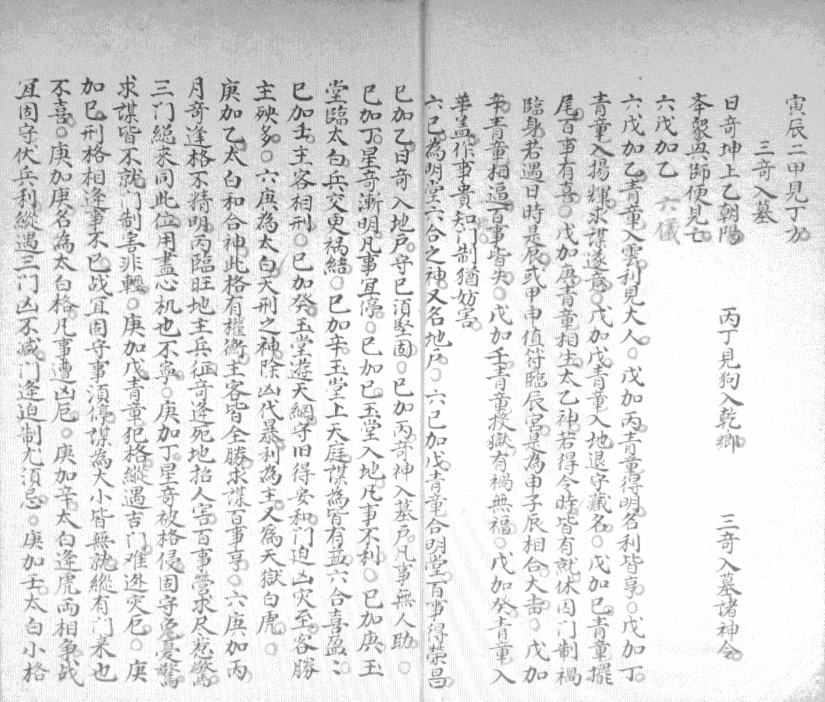 寅辰二甲見丁方
三奇入墓
日奇坤上乙朝陽 丙丁見狗入乾鄉 三奇入墓諸神令
夲衆與師使見亡
六戊加乙 六儀
六戊加乙青童入雲利見大人○戊加丙青童得明名利皆亨○戊加丁
青童入揚輝求謀遂意○戊加戊青童入地退守藏名○戊加巳青童擺
尾百事有喜○戊加庚青童相生太乙神若得令時皆有就休因门制禍
臨身若遇日時是辰或甲申值符臨辰宮是為申子辰相合大吉○戊加
辛青童相逼百事皆失○戊加壬青童投獄有禍無福○戊加癸青童入
華盖作事貴知门制猶妨害
六巳為明堂六合之神又名地户○六巳加戊青童合明堂百事得榮昌
巳加乙日奇入地户守巳須堅固○巳加丙奇神入墓户凡事無人助○
巳加丁星奇漸明凡事宜停○巳加巳玉堂入地凡事不利○巳加庚玉
堂臨太白兵交更禍結○巳加辛玉堂上天庭謀為皆有益六合喜盈〻
巳加壬主客相刑○巳加癸玉堂遊天網守旧得安和门迫凶灾至客勝
主殃多○六庚為太白天刑之神除凶代暴利為主又為天獄白虎○
庚加乙太白和合神此格有權衡主客皆全勝求謀百事亨○六庚加丙
月奇逢格不精明丙臨旺地主兵征奇逢死地招人害百事營求尺惹驚
三门縂来同此位用盡心机也不寧○庚加丁星奇被格侵固守免憂驚
求謀皆不就门制害非輕○庚加戊青童犯格縱遇吉门难逃灾厄○庚
加巳刑格相逢事不巳战宜固守事須停謀為大小皆無就縱有门来也
不喜○庚加庚名為太白格凡事遭凶厄○庚加辛太白逢虎両相争战
宜固守伏兵利縱遇三门凶不减门逢迫制尤須忌○庚加壬太白小格